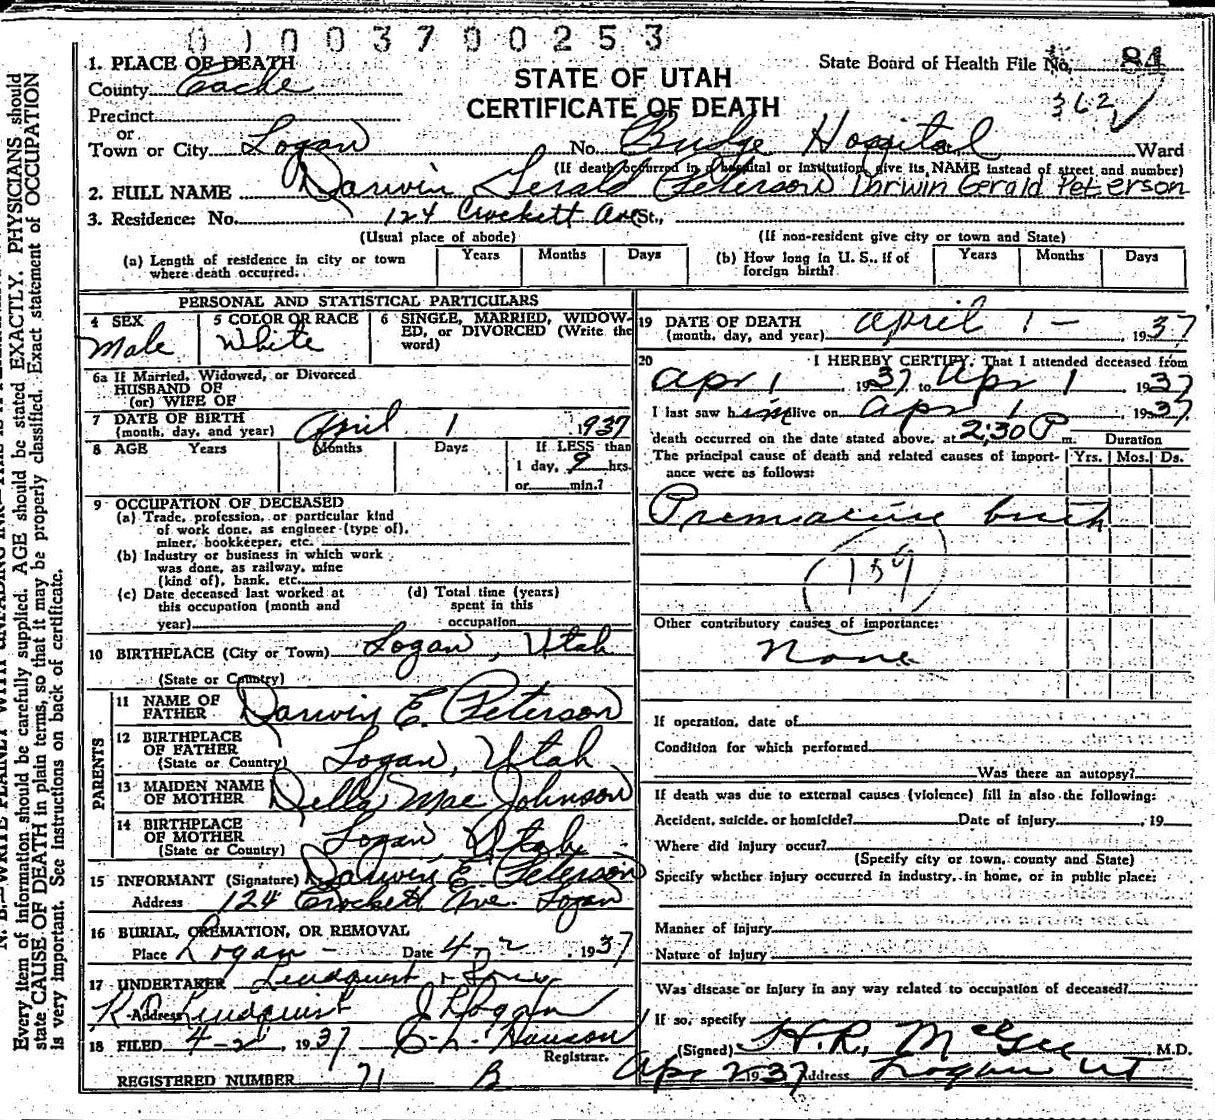 0 1 0 0 3 7 0 0 2 5 3
1. PLACE OF DEATH
County Cache
Precinct
or
Town or City Logan
STATE OF UTAH
CERTIFICATE OF DEATH
State Board of Health File No. 84
362
No. Budge Hospital Ward
(If death occurred in a hospital or institution, give its NAME instead of street and number)
2. FULL NAME Darwin Gerald Peterson Darwin Gerald Peterson
3. Residence: No. 124 Crockett Ave St.,
(Usual place of abode) (If non-resident give city or town and State)
(a) Length of residence in city or town where death occurred. Years Months Days
(b) How long in U. S., if of foreign birth? Years Months Days
PERSONAL AND STATISTICAL PARTICULARS
4 SEX Male
5 COLOR OR RACE White
6 SINGLE, MARRIED, WIDOW-
ED, or DIVORCED (Write the
word)
6a If Married, Widowed, or Divorced
HUSBAND OF
(or) WIFE OF
7 DATE OF BIRTH
(month, day, and year) April 1 1937
8 AGE Years Months Days If LESS than
1 day, 9 hrs.
or min.?
9 OCCUPATION OF DECEASED
(a) Trade, profession, or particular kind
of work done, as engineer (type of),
miner, bookkeeper, etc.
(b) Industry or business in which work
was done, as railway, mine
(kind of), bank, etc.
(c) Date deceased last worked at
this occupation (month and
year)
(d) Total time (years)
spent in this
occupation
10 BIRTHPLACE (City or Town) Logan, Utah
(State or Country)
PARENTS
11 NAME OF
FATHER Darwin E. Peterson
12 BIRTHPLACE
OF FATHER
(State or Country) Logan, Utah
13 MAIDEN NAME
OF MOTHER Della Mae Johnson
14 BIRTHPLACE
OF MOTHER
(State or Country) Logan, Utah
15 INFORMANT (Signature) Darwin E. Peterson
Address 124 Crockett Ave. Logan
16 BURIAL, CREMATION, OR REMOVAL
Place Logan - Date 4-2, 1937
17 UNDERTAKER Lindquist & Sons
Address
18 FILED 4-2, 1937
Registrar.
REGISTERED NUMBER 71 B
19 DATE OF DEATH
(month, day, and year) April 1 - , 1937
20 I HEREBY CERTIFY, That I attended deceased from
Apr 1 1937 to Apr 1 1937
I last saw him alive on Apr 1, 1937
death occurred on the date stated above, at 2:30 P m. Duration
The principal cause of death and related causes of import-
ance were as follows: Yrs. Mos. Ds.
Premature birth
159
Other contributory causes of importance:
None
If operation, date of
Condition for which performed
Was there an autopsy?
If death was due to external causes (violence) fill in also the following:
Accident, suicide, or homicide? Date of injury , 19
Where did injury occur?
(Specify city or town, county and State)
Specify whether injury occurred in industry, in home, or in public place:
Manner of injury
Nature of injury
Was disease or injury in any way related to occupation of deceased?
If so, specify
(Signed) H.R. McGee M.D.
Apr 2 1937 Address Logan Ut
Every item of information should be carefully supplied. AGE should be stated EXACTLY. PHYSICIANS should
state CAUSE OF DEATH in plain terms, so that it may be properly classified. Exact statement of OCCUPATION
is very important. See instructions on back of certificate.